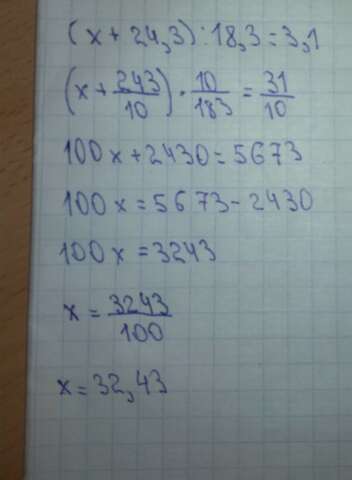 (x + 24,3) : 18,3 = 3,1
(x + 243/10) · 10/183 = 31/10
100x + 2430 = 5673
100x = 5673 - 2430
100x = 3243
x = 3243/100
x = 32,43